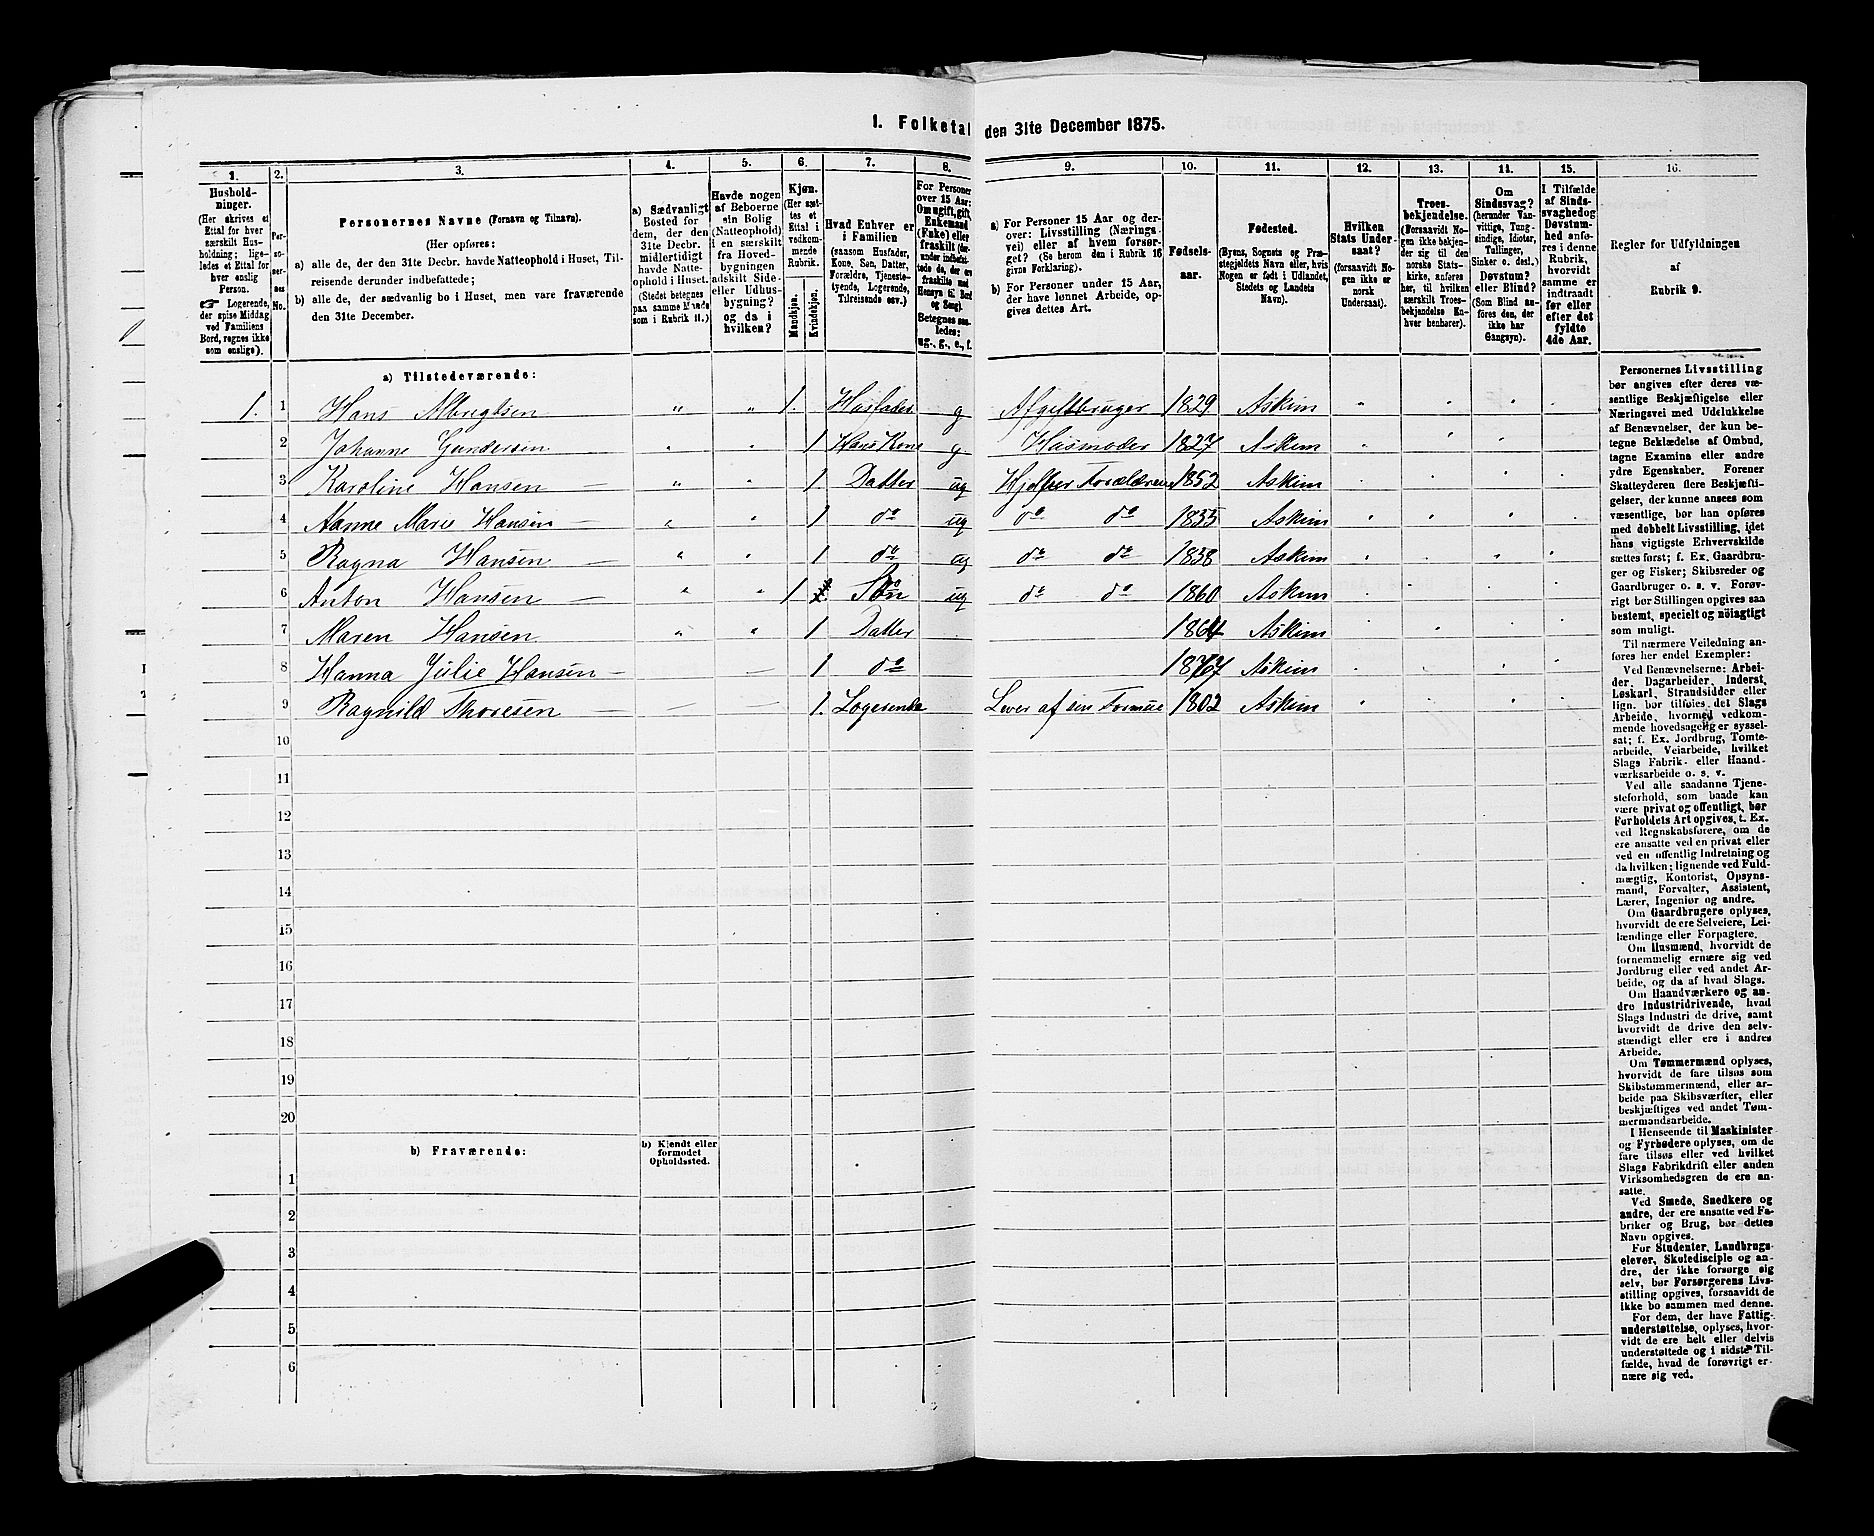 1. Folketal den 31te December 1875.
1. 2. 3. 4. 5. 6. 7. 8. 9. 10. 11. 12. 13. 14. 15. 16.
Husholdninger.
(Her skrives et
Ettal for hver
særskilt Husholdning;
ligeledes et Ettal for
hver enslig
Person.
Logerende,
der spise Middag
ved Familiens
Bord, regnes ikke
som enslige).
Personernes No.
Personernes Navne (Fornavn og Tilnavn).
(Her opføres:
a) alle de, der den 31te Decbr. havde Natteophold i Huset, Tilreisende
derunder indbefattede;
b) alle de, der sædvanlig bo i Huset, men vare fraværende
den 31te December.
a) Sædvanligt
Bosted for
dem, der den
31te Decbr.
midlertidigt
havde Natteophold
i Huset.
(Stedet betegnes
paa samme Maade
som i Rubrik 11.)
Havde nogen
af Beboerne
sin Bolig
(Natteophold)
i en særskilt
fra Hovedbygningen
adskilt Side-
eller Udhusbygning?
og da i
hvilken?
Kjøn.
(Her sættes
et
Ettal i
vedkommende
Rubrik.
Mandkjøn.
Kvindekjøn.
Hvad Enhver er
i Familien
(saasom Husfader,
Kone, Søn, Datter,
Forældre, Tjenestetyende,
Logerende,
Tilreisende osv.)
For Personer
over 15 Aar:
Om ugift, gift,
Enkemand
(Enke) eller
fraskilt
Betegnes saaledes:
ug., g., e., f.
a) For Personer 15 Aar og derover:
Livsstilling (Næringsvei)
eller af hvem forsørget?
(Se herom den i Rubrik 16
givne Forklaring).
b) For Personer under 15 Aar,
der have lønnet Arbeide, opgives
dettes Art.
Fødselsaar.
Fødested.
(Byens, Sognets og Præstegjeldets
Navn eller, hvis
Nogen er født i Udlandet,
Stedets og Landets
Navn).
Hvilken
Stats Undersaat?
(forsaavidt Nogen
ikke er
norsk
Undersaat).
Troesbekjendelse.
(Forsaavidt Nogen
ikke bekjender
sig til den
norske Statskirke,
anføres
her, til hvilken
særskilt Troesbekjendelse
Enhver
henhører).
Om
Sindssvag?
(herunder Vanvittige,
Tungsindige,
Idioter,
Tullinger,
Sinker o. desl.)
Døvstum?
eller Blind?
(Som Blind anføres
den, der
ikke har
Gangsyn).
I Tilfælde
af Sindssvaghed
og
Døvstumhed
anføres
i denne
Rubrik,
hvorvidt
samme er
indtraadt
før eller
efter det
fyldte
4de Aar.
Regler for Udfyldningen
af
Rubrik 9.
a) Tilstedeværende:
1. 1 Hans Albregtsen " " 1. Husfader g Afgiftbruger 1829 Askim
2 Johanne Gundersen " " 1 Hans Kone g Husmoder 1827 Askim
3 Karoline Hansen " " 1. Datter ug Hjelper Forældrene 1852 Askim
4 Aanne Marie Hansen " " 1 do ug do do 1855 Askim
5 Ragna Hansen " " 1 do ug do do 1858 Askim
6 Anton Hansen " " 1 Søn ug do do 1860 Askim
7 Maren Hansen " " 1 Datter 1864 Askim
8 Hanna Julie Hansen 1 do 1867 Askim
9 Ragnild Thoresen 1. Logerende Lever af sin Formue 1802 Askim
10
11
12
13
14
15
16
17
18
19
20
b) Fraværende:
b) Kjendt eller
formodet
Opholdssted.
1
2
3
4
5
6
Personernes Livsstilling
bør angives efter deres væsentlige
Beskjæftigelse eller
Næringsvei med Udelukkelse
af Benævnelser, der kun betegne
Beklædelse af Ombud,
tagne Examina eller andre
ydre Egenskaber. Forener
Skatteyderen flere Beskjæftigelser,
der kunne ansees som
væsentlige, bør han opføres
med dobbelt Livsstilling, idet
hans vigtigste Erhvervskilde
sættes først; f. Ex. Gaardbruger
og Fisker; Skibsreder og
Gaardbruger o. s. v. Forøvrigt
bør Stillingen opgives saa
bestemt, specielt og nöiagtigt
som muligt.
Til nærmere Veiledning anføres
her endel Exempler:
Ved Benævnelserne: Arbeider,
Dagarbeider, Inderst,
Løskarl, Strandsidder eller
lign. bør tilføies det Slags
Arbeide, hvormed vedkommende
hovedsagelig er sysselsat;
f. Ex. Jordbrug, Tomtearbeide,
Veiarbeide, hvilket
Slags Fabrik- eller Haandværksarbeide
o. s. v.
Ved alle saadanne Tjenesteforhold,
som baade kan
være privat og offentligt, bør
Forholdets Art opgives, t. Ex.
ved Regnskabsførere, om de
ere ansatte ved en privat eller
ved en offentlig Indretning og
da hvilken; lignende ved Fuldmægtig,
Kontorist, Opsynsmand,
Forvalter, Assistent,
Lærer, Ingeniør og andre.
Om Gaardbrugere oplyses,
hvorvidt de ere Selveiere, Leilændinge
eller Forpagtere.
Om Husmænd, hvorvidt de
fornemmelig ernære sig ved
Jordbrug eller ved andet Arbeide,
og da af hvad Slags.
Om Haandværkere og andre
Industridrivende, hvad
Slags Industri de drive, samt
hvorvidt de drive den selvstændigt
eller ere i andres
Arbeide.
Om Tømmermænd oplyses,
hvorvidt de fare tilsøs som
Skibstømmermænd, eller arbeide
paa Skibsværfter, eller
beskjæftiges ved andet Tømmermandsarbeide.
I Henseende til Maskinister
og Fyrbødere oplyses, om de
fare tilsøs eller ved hvilket
Slags Fabrikdrift eller anden
Virksomhedsgren de ere ansatte.
Ved Smede, Snedkere og
andre, der ere ansatte ved Fabriker
og Brug, bør dettes
Navn opgives.
For Studenter, Landbrugselever,
Skoledisciple og andre,
der ikke forsørge sig
selv, bør Forsørgerens Livsstilling
opgives, forsaavidt de
ikke bo sammen med denne.
For dem, der have Fattigunderstøttelse,
oplyses, hvorvidt
de ere helt eller delvis
understøttede og i sidste Tilfælde,
hvad de forøvrigt ernære
sig ved.